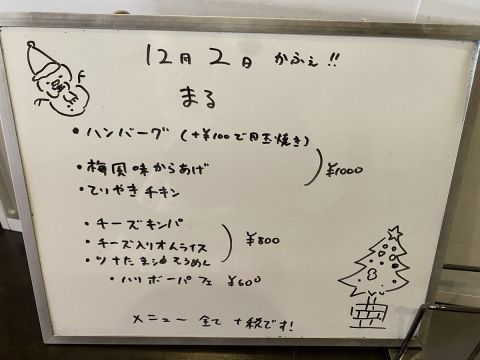 12月2日 かふぇ!!
まる
・ハンバーグ (+¥100で目玉焼き)
・梅風味からあげ
・てりやきチキン
¥1000
・チーズキンパ
・チーズ入りオムライス
・ツナたま油そうめん
¥800
・ハリボーパフェ ¥600
メニュー 全て +税です!